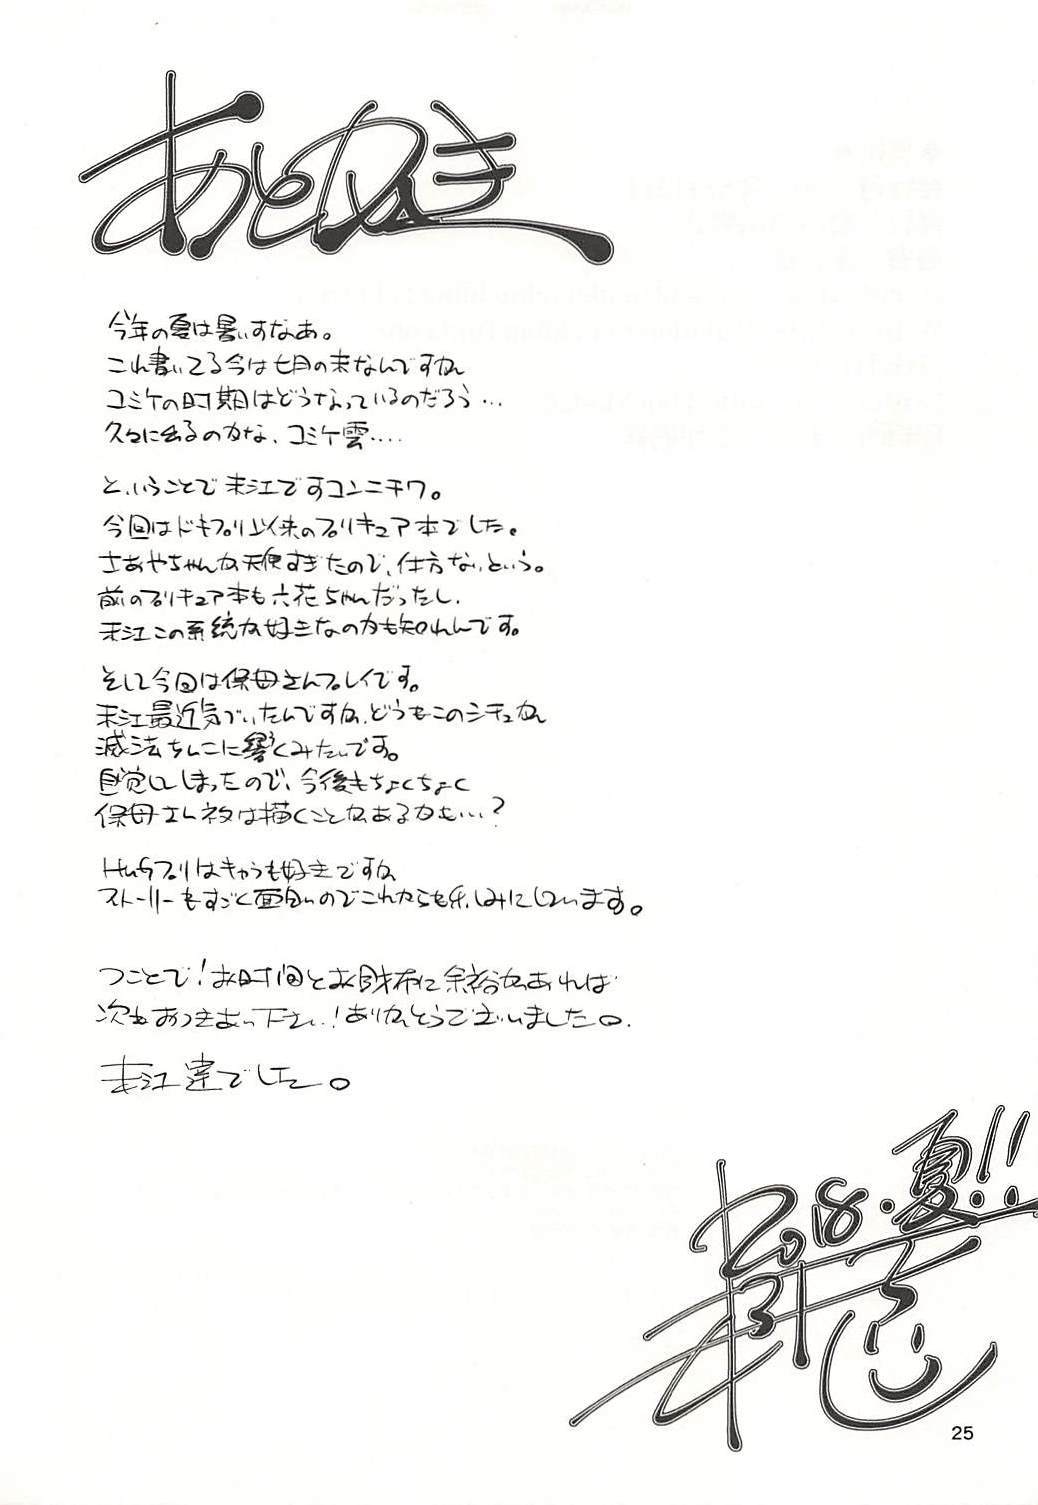 あとがき
今年の夏は暑いすなあ。
これ書いてる今は七月の末なんですが
コミケの時期はどうなっているのだろう…
久々に出るのかな、コミケ雲‥‥
と、いうことで末江ですコンニチワ。
今回はドキプリ以来のプリキュア本でした。
さあやちゃんが天使すぎたので、仕方ないという。
前のプリキュア本も六花ちゃんだったし、
末江この系統が好きなのかも知れんです。
そして今回は保母さんプレイです。
末江最近気づいたんですが、どうもこのシチュが
滅法ちんこに響くみたいです。
自覚してしまったので、今後もちょくちょく
保母さんネタは描くことがあるかも…?
Hugプリはキャラも好きですが
ストーリーもすごく面白いのでこれからも楽しみにしています。
つことで!お時間とお財布に余裕があれば
次もおつきあい下さい!ありがとうございました。
末江 達でした。
2018・夏!!
25